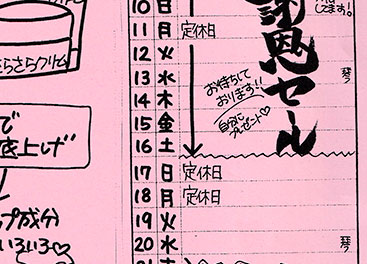 らさらクリーム
で
底上げ"
プ成分
いろいろ♡
してます。
謝恩セール
お待ちして
おります!!
自分に
プレゼント♡
10 日
11 月 定休日
12 火
13 水 琴
14 木
15 金
16 土
17 日 定休日
18 月 定休日
19 火
20 水 琴